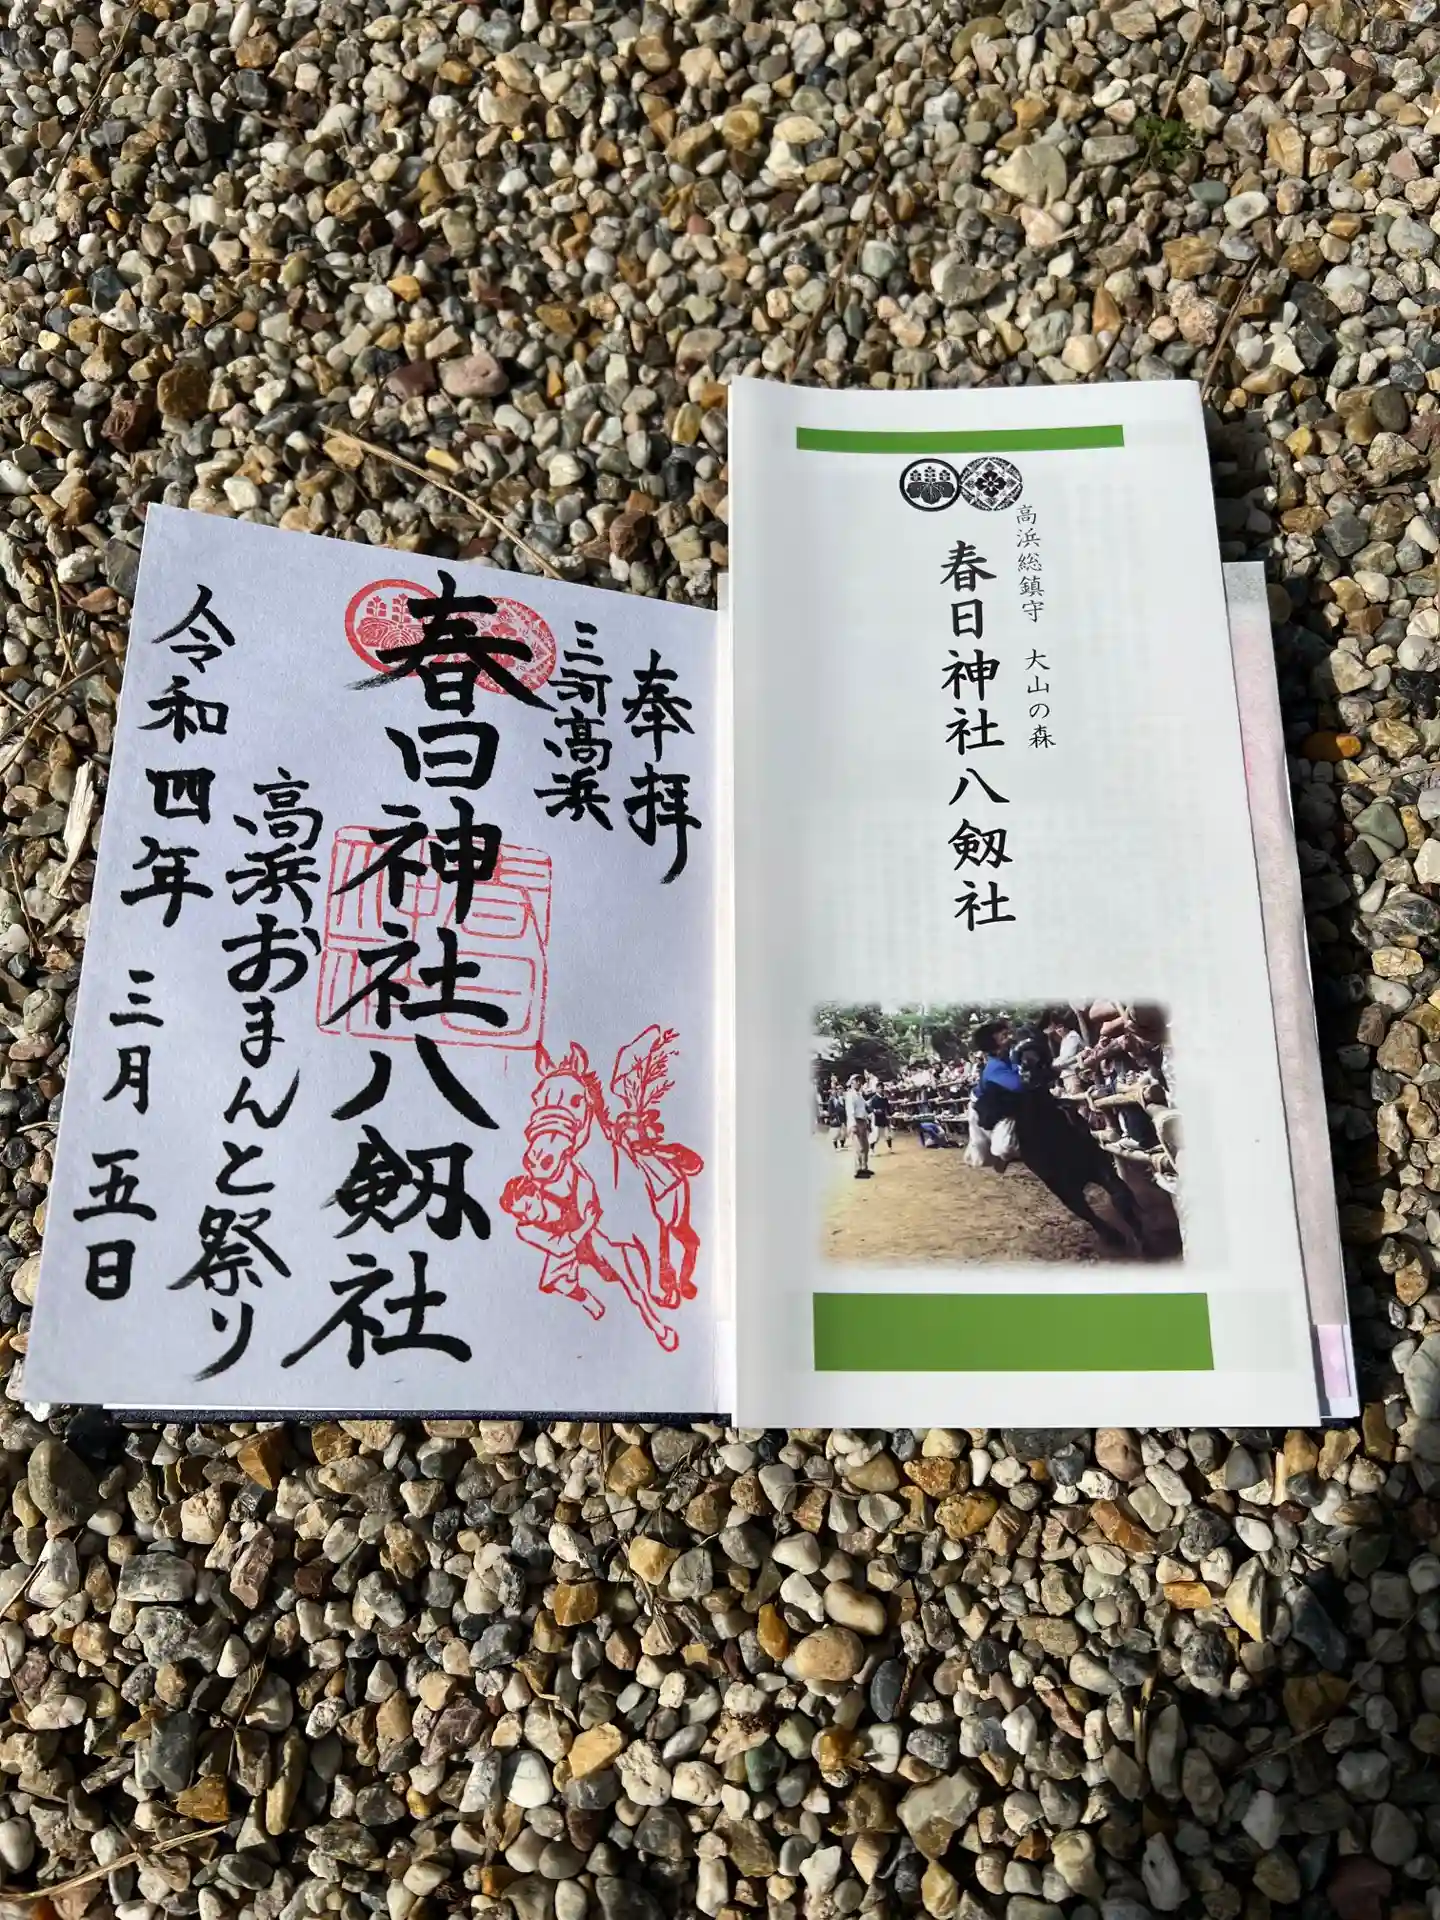 奉拝
三河高浜
春日神社八剱社
高浜おまんと祭り
令和四年 三月 五日
春日
神社
高浜総鎮守 大山の森
春日神社八剱社